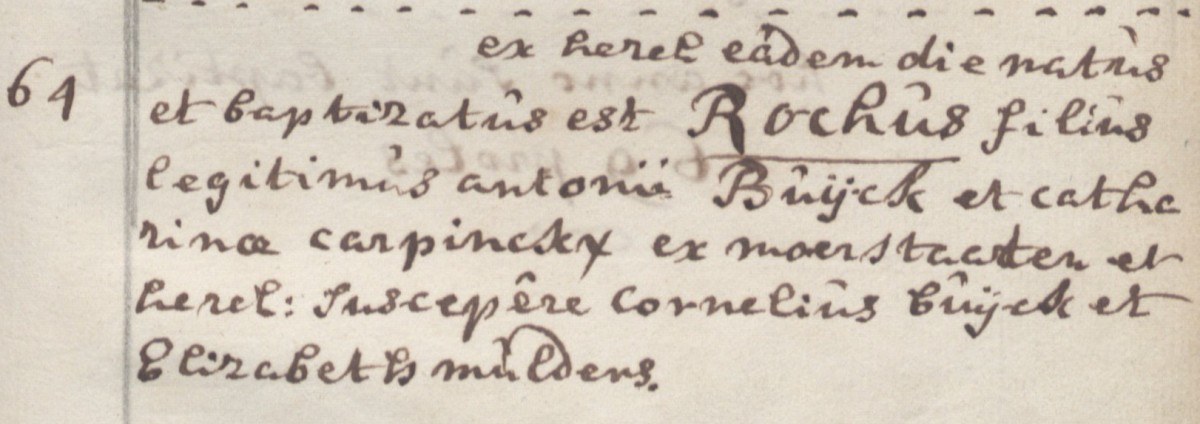 ex herel eâdem die natûs
64
et baptizatûs est Rochûs filiûs
legitimûs antonii Bûijck et catha
rinæ carpinckx ex moerstaaten et
herel: suscepêre Corneliûs bûijck et
Elizabeth mûlders.